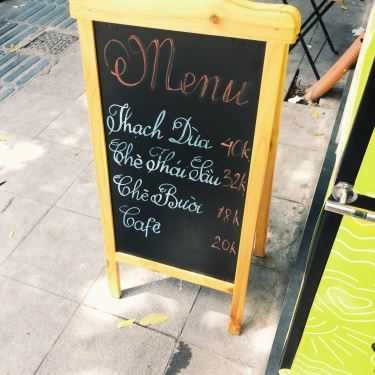 Menu
Thạch Dừa 40k
Chè Thái Sầu 32k
Chè Bưởi 18k
Cafê 20k